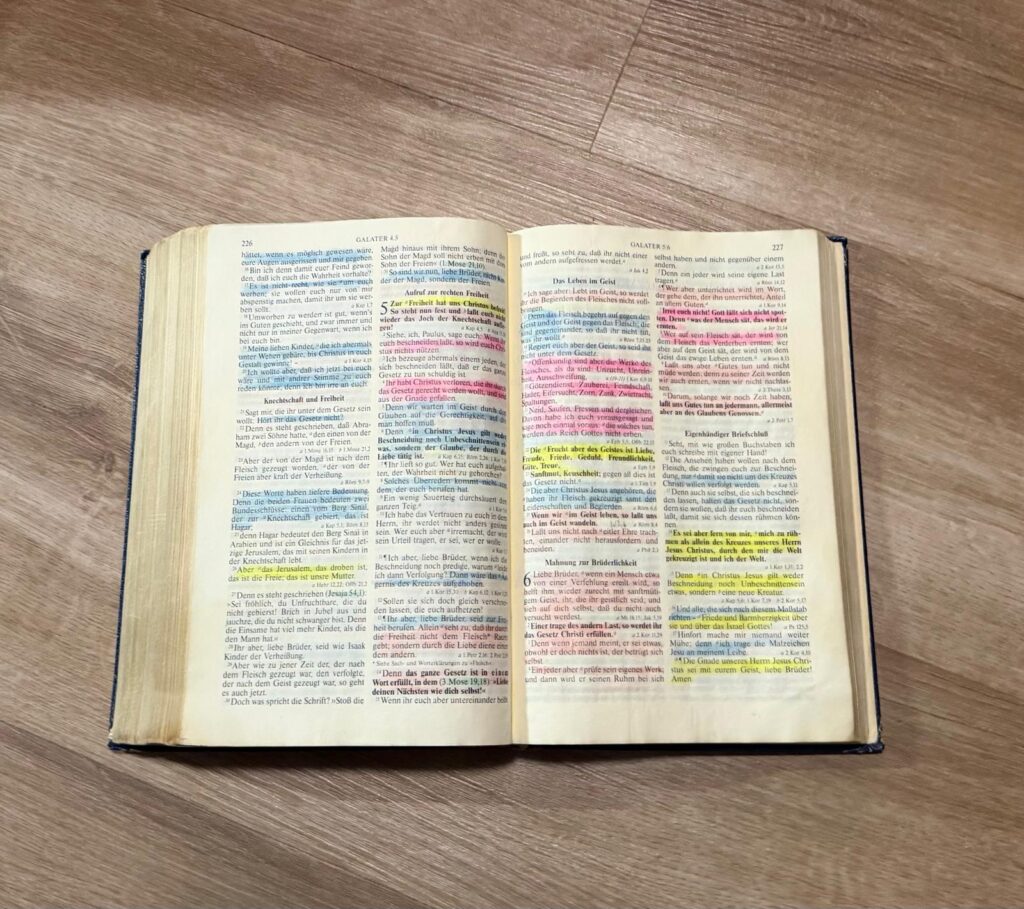 226
GALATER 4.5
hättet, wenn es möglich gewesen wäre,
eure Augen ausgerissen und mir gegeben.
Bin ich denn damit euer Feind gewor-
den, daß ich euch die Wahrheit vorhalte?
Es ist nicht recht, wie sie um euch
werben; sie wollen euch nur von mir
abspenstig machen, damit ihr um sie wer-
ben sollt.
Umworben zu werden ist gut, wenn's
im Guten geschieht, und zwar immer und
nicht nur in meiner Gegenwart, wenn ich
bei euch bin.
Meine lieben Kinder, die ich abermals
unter Wehen gebäre, bis Christus in euch
Gestalt gewinne!
Ich wollte aber, daß ich jetzt bei euch
wäre und mit andrer Stimme zu euch
reden könnte, denn ich bin irre an euch.
Knechtschaft und Freiheit
Sagt mir, die ihr unter dem Gesetz sein
wollt: Hört ihr das Gesetz nicht?
Denn es steht geschrieben, daß Abra-
ham zwei Söhne hatte, den einen von der
Magd, den andern von der Freien.
Aber der von der Magd ist nach dem
Fleisch gezeugt worden, der von der
Freien aber kraft der Verheißung.
Diese Worte haben tiefere Bedeutung.
Denn die beiden Frauen bedeuten zwei
Bundesschlüsse: einen vom Berg Sinai,
der zur Knechtschaft gebiert, das ist
Hagar;
denn Hagar bedeutet den Berg Sinai in
Arabien und ist ein Gleichnis für das jet-
zige Jerusalem, das mit seinen Kindern in
der Knechtschaft lebt.
Aber das Jerusalem, das droben ist,
das ist die Freie; das ist unsre Mutter.
Denn es steht geschrieben (Jesaja 54,1):
»Sei fröhlich, du Unfruchtbare, die du
nicht gebierst! Brich in Jubel aus und
jauchze, die du nicht schwanger bist. Denn
die Einsame hat viel mehr Kinder, als die
den Mann hat.«
Ihr aber, liebe Brüder, seid wie Isaak
Kinder der Verheißung.
Aber wie zu jener Zeit der, der nach
dem Fleisch gezeugt war, den verfolgte,
der nach dem Geist gezeugt war, so geht
es auch jetzt.
Doch was spricht die Schrift? »Stoß die
Magd hinaus mit ihrem Sohn; denn der
Sohn der Magd soll nicht erben mit dem
Sohn der Freien« (1. Mose 21,10).
So sind wir nun, liebe Brüder, nicht Kin
der der Magd, sondern der Freien.
Aufruf zur rechten Freiheit
5 Zur Freiheit hat uns Christus befreit!
So steht nun fest und laßt euch nicht
wieder das Joch der Knechtschaft aufle
gen!
Siehe, ich, Paulus, sage euch: Wenn ihr
euch beschneiden laßt, so wird euch Chri
stus nichts nützen.
Ich bezeuge abermals einem jeden, der
sich beschneiden läßt, daß er das ganze
Gesetz zu tun schuldig ist.
Ihr habt Christus verloren, die ihr durch
das Gesetz gerecht werden wollt, und seid
aus der Gnade gefallen.
Denn wir warten im Geist durch den
Glauben auf die Gerechtigkeit, auf die
man hoffen muß.
Denn in Christus Jesus gilt weder
Beschneidung noch Unbeschnittensein et
was, sondern der Glaube, der durch die
Liebe tätig ist.
Ihr lieft so gut. Wer hat euch aufgehal
ten, der Wahrheit nicht zu gehorchen?
Solches Überreden kommt nicht von
dem, der euch berufen hat.
Ein wenig Sauerteig durchsäuert den
ganzen Teig.
Ich habe das Vertrauen zu euch in dem
Herrn, ihr werdet nicht anders gesinnt
sein. Wer euch aber irremacht, der wird
sein Urteil tragen, er sei, wer er wolle.
Ich aber, liebe Brüder, wenn ich die
Beschneidung noch predige, warum leide
ich dann Verfolgung? Dann wäre das Är
gernis des Kreuzes aufgehoben.
Sollen sie sich doch gleich verschnei
den lassen, die euch aufhetzen!
Ihr aber, liebe Brüder, seid zur Frei
heit berufen. Allein seht zu, daß ihr durch
die Freiheit nicht dem Fleisch* Raum
gebt; sondern durch die Liebe diene einer
dem andern.
* Siehe Sach- und Worterklärungen zu »Fleisch«.
Denn das ganze Gesetz ist in einem
Wort erfüllt, in dem (3. Mose 19,18): »Liebe
deinen Nächsten wie dich selbst!«
Wenn ihr euch aber untereinander beißt
GALATER 5.6
227
und freßt, so seht zu, daß ihr nicht einer
vom andern aufgefressen werdet.
Das Leben im Geist
Ich sage aber: Lebt im Geist, so werdet
ihr die Begierden des Fleisches nicht voll-
bringen.
Denn das Fleisch begehrt auf gegen den
Geist und der Geist gegen das Fleisch; die
sind gegeneinander, so daß ihr nicht tut,
was ihr wollt.
Regiert euch aber der Geist, so seid ihr
nicht unter dem Gesetz.
Offenkundig sind aber die Werke des
Fleisches, als da sind: Unzucht, Unrein-
heit, Ausschweifung,
Götzendienst, Zauberei, Feindschaft,
Hader, Eifersucht, Zorn, Zank, Zwietracht,
Spaltungen,
Neid, Saufen, Fressen und dergleichen.
Davon habe ich euch vorausgesagt und
sage noch einmal voraus: die solches tun,
werden das Reich Gottes nicht erben.
Die Frucht aber des Geistes ist Liebe,
Freude, Friede, Geduld, Freundlichkeit,
Güte, Treue,
Sanftmut, Keuschheit; gegen all dies ist
das Gesetz nicht.
Die aber Christus Jesus angehören, die
haben ihr Fleisch gekreuzigt samt den
Leidenschaften und Begierden.
Wenn wir im Geist leben, so laßt uns
auch im Geist wandeln.
Laßt uns nicht nach eitler Ehre trach-
ten, einander nicht herausfordern und
beneiden.
Mahnung zur Brüderlichkeit
6 Liebe Brüder, wenn ein Mensch etwa
von einer Verfehlung ereilt wird, so
helft ihm wieder zurecht mit sanftmüti-
gem Geist, ihr, die ihr geistlich seid; und
sieh auf dich selbst, daß du nicht auch
versucht werdest.
Einer trage des andern Last, so werdet ihr
das Gesetz Christi erfüllen.
Denn wenn jemand meint, er sei etwas,
obwohl er doch nichts ist, der betrügt sich
selbst.
Ein jeder aber prüfe sein eigenes Werk;
und dann wird er seinen Ruhm bei sich
selbst haben und nicht gegenüber einem
andern.
Denn ein jeder wird seine eigene Last
tragen.
Wer aber unterrichtet wird im Wort,
der gebe dem, der ihn unterrichtet, Anteil
an allem Guten.
Irret euch nicht! Gott läßt sich nicht spot-
ten. Denn was der Mensch sät, das wird er
ernten.
Wer auf sein Fleisch sät, der wird von
dem Fleisch das Verderben ernten; wer
aber auf den Geist sät, der wird von dem
Geist das ewige Leben ernten.
Laßt uns aber Gutes tun und nicht
müde werden; denn zu seiner Zeit werden
wir auch ernten, wenn wir nicht nachlas-
sen.
Darum, solange wir noch Zeit haben,
laßt uns Gutes tun an jedermann, allermeist
aber an des Glaubens Genossen.
Eigenhändiger Briefschluß
Seht, mit wie großen Buchstaben ich
euch schreibe mit eigener Hand!
Die Ansehen haben wollen nach dem
Fleisch, die zwingen euch zur Beschnei-
dung, nur damit sie nicht um des Kreuzes
Christi willen verfolgt werden.
Denn auch sie selbst, die sich beschnei-
den lassen, halten das Gesetz nicht, son-
dern sie wollen, daß ihr euch beschneiden
laßt, damit sie sich dessen rühmen kön-
nen.
Es sei aber fern von mir, mich zu rüh-
men als allein des Kreuzes unseres Herrn
Jesus Christus, durch den mir die Welt
gekreuzigt ist und ich der Welt.
Denn in Christus Jesus gilt weder
Beschneidung noch Unbeschnittensein
etwas, sondern eine neue Kreatur.
Und alle, die sich nach diesem Maßstab
richten – Friede und Barmherzigkeit über
sie und über das Israel Gottes!
Hinfort mache mir niemand weiter
Mühe; denn ich trage die Malzeichen
Jesu an meinem Leibe.
Die Gnade unseres Herrn Jesus Chri-
stus sei mit eurem Geist, liebe Brüder!
Amen